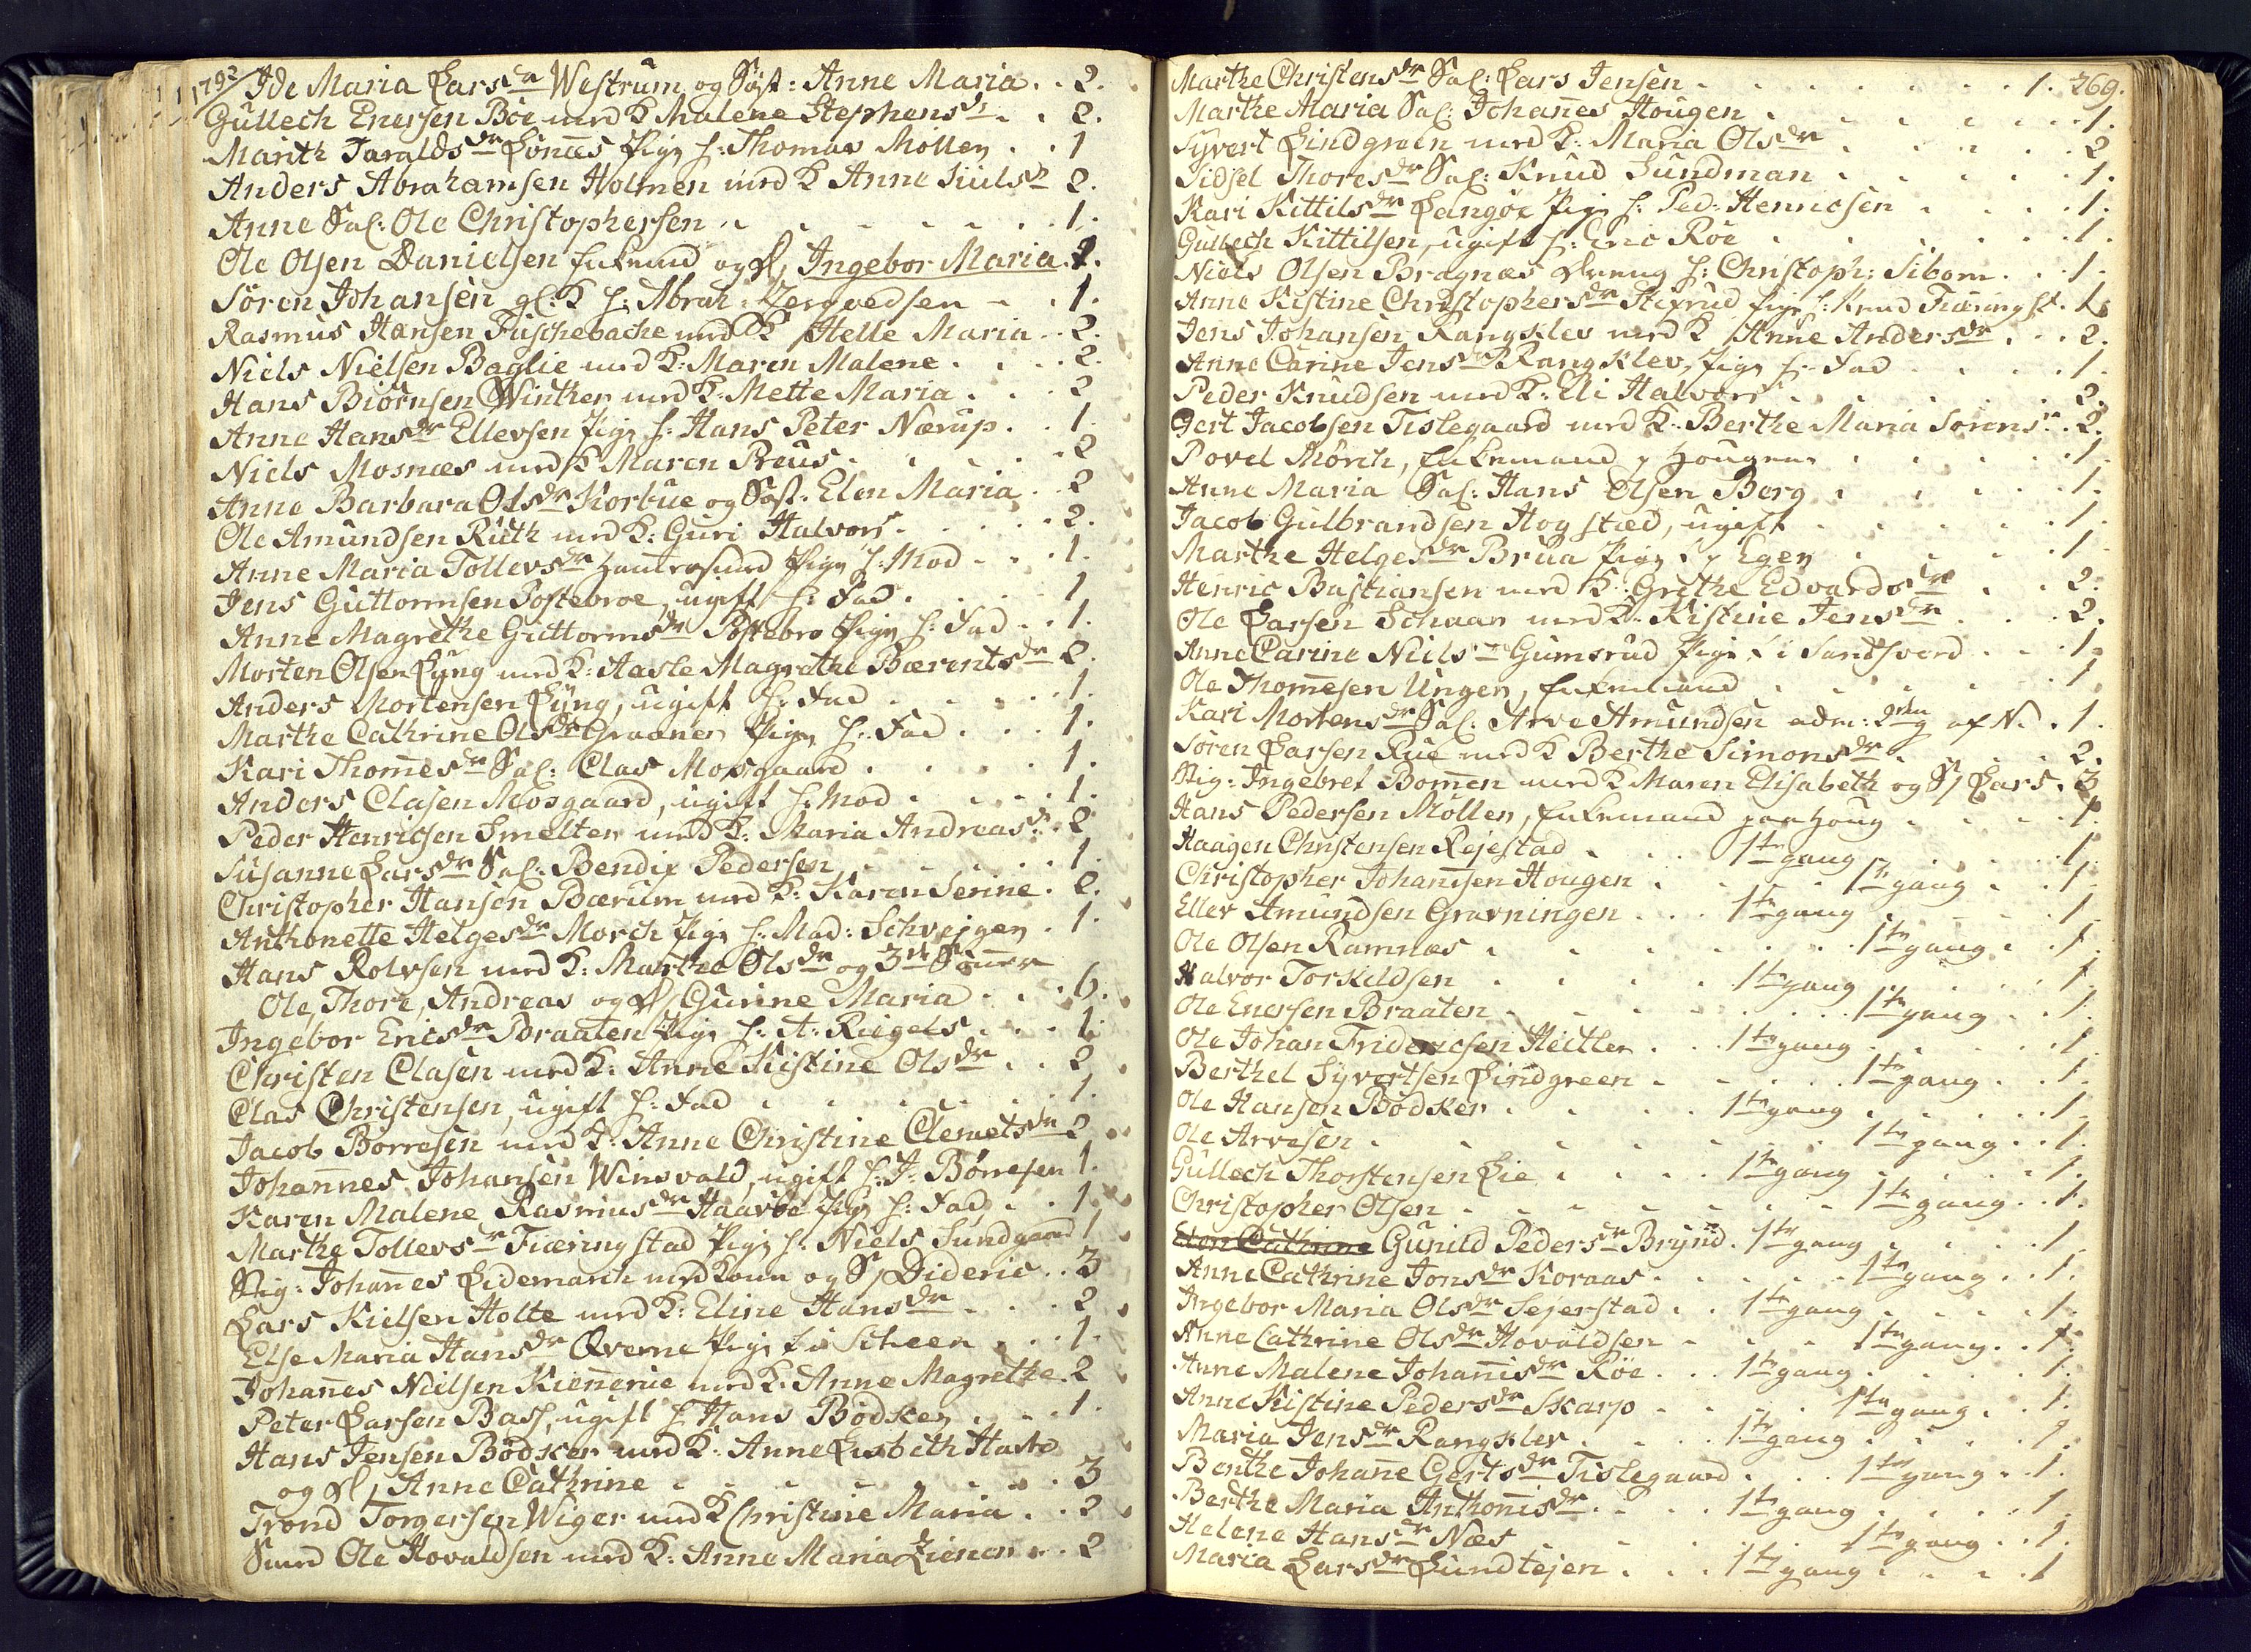 1792
Ide Maria Larsdr Westrum og Søst: Anne Maria . . 2.
Gullech Enersen Böe med K Malene Stephensdr . . 2.
Marith Jaraldsdr Lönnes Pige h: Thomas Möllen . . 1
Anders Abrahamsen Holmen med K Anne Juulsdr 2.
Anne Sal: Ole Christophersen . . 1.
Ole Olsen Danielsen Enkemd og D, Ingebor Maria. 2.
Sören Johansen gl: K h: Abrah: - . 1.
Rasmus Hansen Fuschebache med K Helle Maria . . 2.
Niels Nielsen Baglie med K: Maren Malene . . 2.
Hans Biörnsen Winther med K: Mette Maria . . 2
Anne Hansdr Ellevsen Pige h: Hans Peter Nærup . . 1.
Niels Mosnæs med K Maren Preus . . 2
Anne Barbara Olsdr Korbue og Søst: Elen Maria . . 2
Ole Amundsen Ruth med K: Guri Halvors . . 2.
Anne Maria Tollevsdr Pige h: Mod . . 1.
Jens Guttormsen Postebroe, ugift h: Fad . . 1
Anne Magrethe Guttormsdr Postebro Pige h: Fad . . 1.
Morten Olsen Lyng med K: Aasle Magrethe Bærentsdr 2.
Anders Mortensen Lyng, ugift h: Fad . . 1.
Marthe Cathrine Olsdr Graanen Pige h: Fad . . 1.
Kari Thommesdr Sal: Clas Mosgaard . . 1.
Anders Clasen Mosgaard, ugift h: Mod . . 1.
Peder Henricsen Smelter med K: Maria Andreasdr . 2
Susanne Larsdr Sal: Bendix Pedersen . . 1.
Christopher Hansen Bærum med K: Karen Serine . 2.
Anthonette Helgesdr Morch Pige h: Mad: Schvejgen . 1.
Hans Rolvsen med K: Marthe Olsdr og 3de Sönner
Ole, Thore, Andreas og D, Gurine Maria . . 6.
Ingebor Ericsdr Braaten Pige h: A: Riegels . . 1.
Christen Clasen med K: Anne Kistine Olsdr . . 2
Clas Christensen, ugift h: Fad . . 1.
Jacob Börresen med K: Anne Christine Clemetsdr 2
Johannes Johansen Winsvold, ugift h: J: Börresen 1.
Karen Malene Rasmusdr Haavoe Pige h: Fad . . 1.
Marthe Tollevsdr Fiæringstad Pige h: Niels Sundgaard 1
Sig: Johannes Lidemarch med Kone og S, Dideric . . 3
Lars Kielsen Holte med K: Eline Hansdr . . 2
Else Maria Hansdr Qverne Pige i Scheen . . 1.
Johannes Nielsen Kiennerie med K: Anne Magrethe. 2
Peter Larsen Bass, ugift h Hans Bödker . . 1.
Hans Jensen Bödker med K: Anne Lisbeth
og D, Anne Cathrine . . 3
Trond Torgersen Wiger med K Christine Maria . . 2
Smed Ole Hovaldsen med K: Anne Maria Zienen . . 2
269.
Marthe Christensdr Sal: Lars Jensen . . 1.
Marthe Maria Sal: Johannes Hougen . . 1.
Syvert Lindgreen med K: Maria Olsdr . . 2
Sidsel Thoresdr Sal: Knud Sundman . . 1.
Kari Kittilsdr Langöe Pige h: Ped: Henricsen . . 1.
Gullech Kittilsen, ugift h: Eric Röe . . 1.
Niels Olsen Bragnæs Dreng h: Christoph: Sibom . . 1.
Anne Kistine Christophersdr Stixrud Pige h: Knud Fiæringst. 1.
Jens Johansen Rangklev med K Anne Andersdr . . 2.
Anne Carine Jensdr Rangklev, Pige h: Fad . . 1.
Peder Knudsen med K: Eli Halvors . . 2.
Gert Jacobsen Tislegaard med K: Berthe Maria Sörensdr . 2.
Povel Mörch, Enkemand p Hougen . . 1.
Anne Maria Sal: Hans Olsen Berg . . 1.
Jacob Gulbrandsen Hogstæd, ugift . . 1.
Marthe Helgesdr Brua Pige p Egen . . 1
Henric Bastiansen med K: Grethe Edvardsdr . . 2.
Ole Larsen Schaar med K: Kistine Jensdr . . 2.
Anne Carine Nielsdr Gumsrud Pige i Sandsverd . . 1.
Ole Thommesen Ungen, Enkemand . . 1
Kari Mortensdr Sal: Arve Amundsen adm: af N. . 1.
Sören Larsen Rue med K Berthe Simonsdr . . 2.
Sig: Ingebret Bommen med K Maren Elisabeth og S, Lars . 3
Hans Pedersen Möllen, Enkemand paa Houg . . 1.
Haagen Christensen Rejestad . . 1te gang . . 1.
Christopher Johannsen Hougen . . 1te gang . . 1.
Ellev Amundsen Gravningen . . 1te gang . . 1
Ole Olsen Ramnæs . . 1te gang . . 1.
Halvor Torkildsen . . 1te gang . . 1
Ole Enersen Braaten . . 1te gang . . 1.
Ole Johan Fridericsen Heitler . . 1te gang . . 1.
Berthel Syvertsen Lindgreen . . 1te gang . . 1.
Ole Hansen Bödker . . 1te gang . . 1.
Ole Arvesen . . 1te gang . . 1.
Gullech Thorstensen Lie . . 1te gang . . 1.
Christopher Olsen . . 1te gang . . 1.
Elen Cathrine Gunild Pedersdr Brynd . 1te gang . . 1
Anne Cathrine Jonsdr Koraas . . 1te gang . . 1.
Ingebor Maria Olsdr Sejerstad . . 1te gang . . 1.
Anne Cathrine Olsdr Hovaldsen . . 1te gang . . 1.
Anne Malene Johannisdr Röe . . 1te gang . . 1.
Anne Kistine Pedersdr Skarp . . 1te gang . . 1.
Maria Jensdr Rangklev . . 1te gang . . 1
Berthe Johanne Gertsdr Tislegaard . . 1te gang . . 1.
Berthe Maria Anthonisdr . . 1te gang . . 1
Helene Hansdr Næs . . 1te gang . . 1.
Maria Larsdr Lundtejen . . 1te gang . . 1